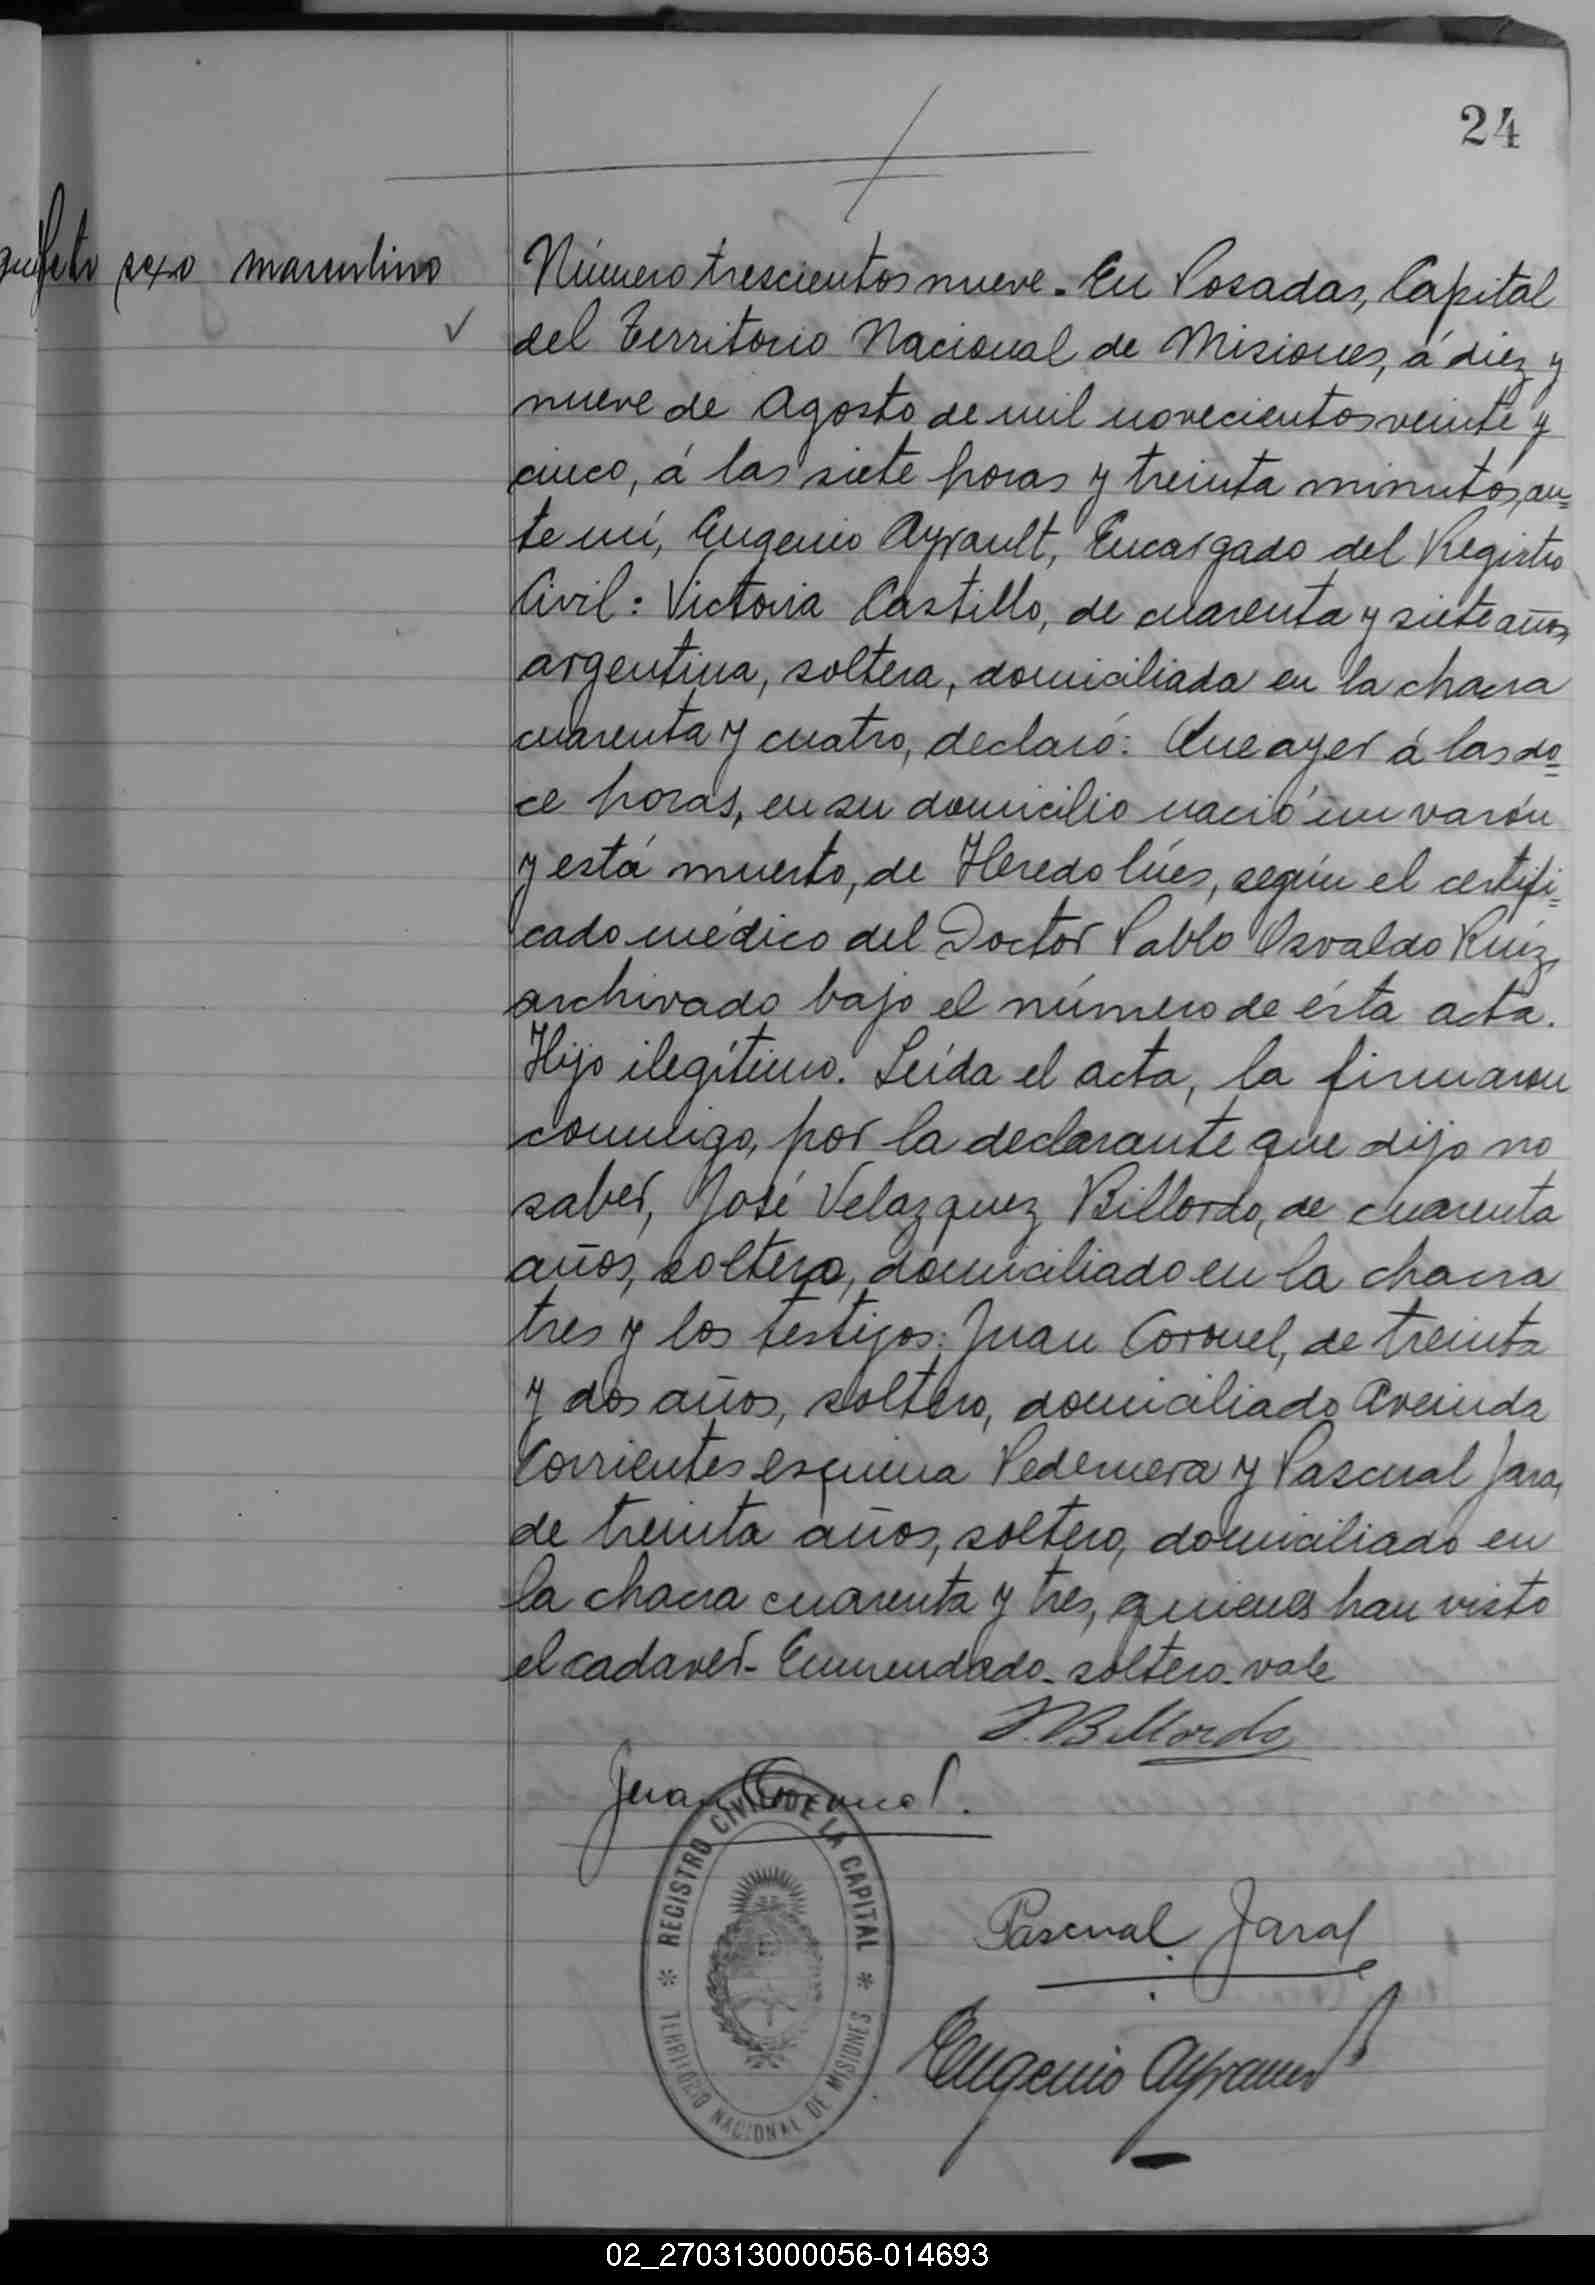 24
feto sexo masculino
Número trescientos nueve. En Posadas, Capital
del Territorio Nacional de Misiones, á diez y
nueve de Agosto de mil novecientos veinte y
cinco, á las siete horas y treinta minutos, an=
te mí, Eugenio Ayrault, Encargado del Registro
Civil: Victoria Castillo, de cuarenta y siete años,
argentina, soltera, domiciliada en la chacra
cuarenta y cuatro, declaró: Que ayer á las do=
ce horas, en su domicilio nació un varón
y está muerto, de Heredo lúes, según el certifi=
cado médico del Doctor Pablo Osvaldo Ruíz,
archivado bajo el número de ésta acta.
Hijo ilegítimo. Leída el acta, la firmaron
conmigo, por la declarante que dijo no
saber, José Velazquez Billordo, de cuarenta
años, soltero, domiciliado en la chacra
tres y los testigos: Juan Coronel, de treinta
y dos años, soltero, domiciliado Avenida
Corrientes esquina Pedernera y Pascual Jara,
de treinta años, soltero, domiciliado en
la chacra cuarenta y tres, quienes han visto
el cadaver. Enmendado. soltero. vale
J. Billordo
Juan Coronel.
REGISTRO CIVIL DE LA CAPITAL
TERRITORIO NACIONAL DE MISIONES
Pascual Jara
Eugenio Ayrault
02_270313000056-014693